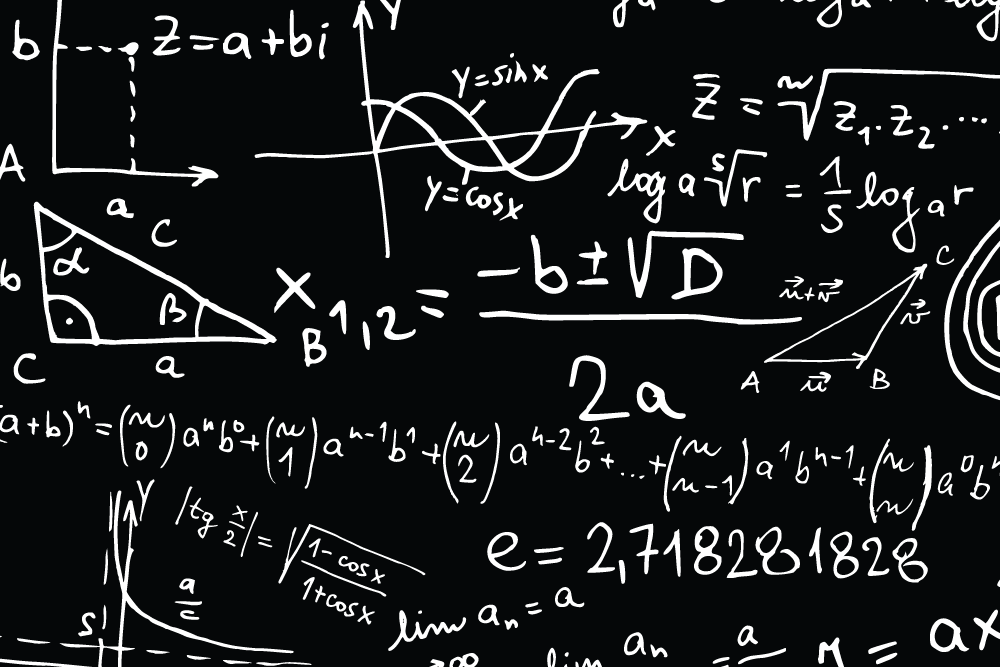 b
Z=a+bi
A
a
Y
y=sinx
y=cosx
x
z̄ = ⁿ√z₁.z₂.…
log a ⁵√r = 1/s logₐr
b
α
c
β
C
a
B
x₁,₂ = (-b±√D)/2a
u⃗+v⃗
C
v⃗
A
u⃗
B
(a+b)ⁿ=(n 0)aⁿb⁰+(n 1)aⁿ⁻¹b¹+(n 2)aⁿ⁻²b²+…+(n n-1)a¹bⁿ⁻¹+(n n)a⁰bⁿ
Y
a/c
S
|tg x/2|=√((1-cosx)/(1+cosx))
e=2,718281828
lim aₙ=a
→∞
lim aₙ = a
M = ax